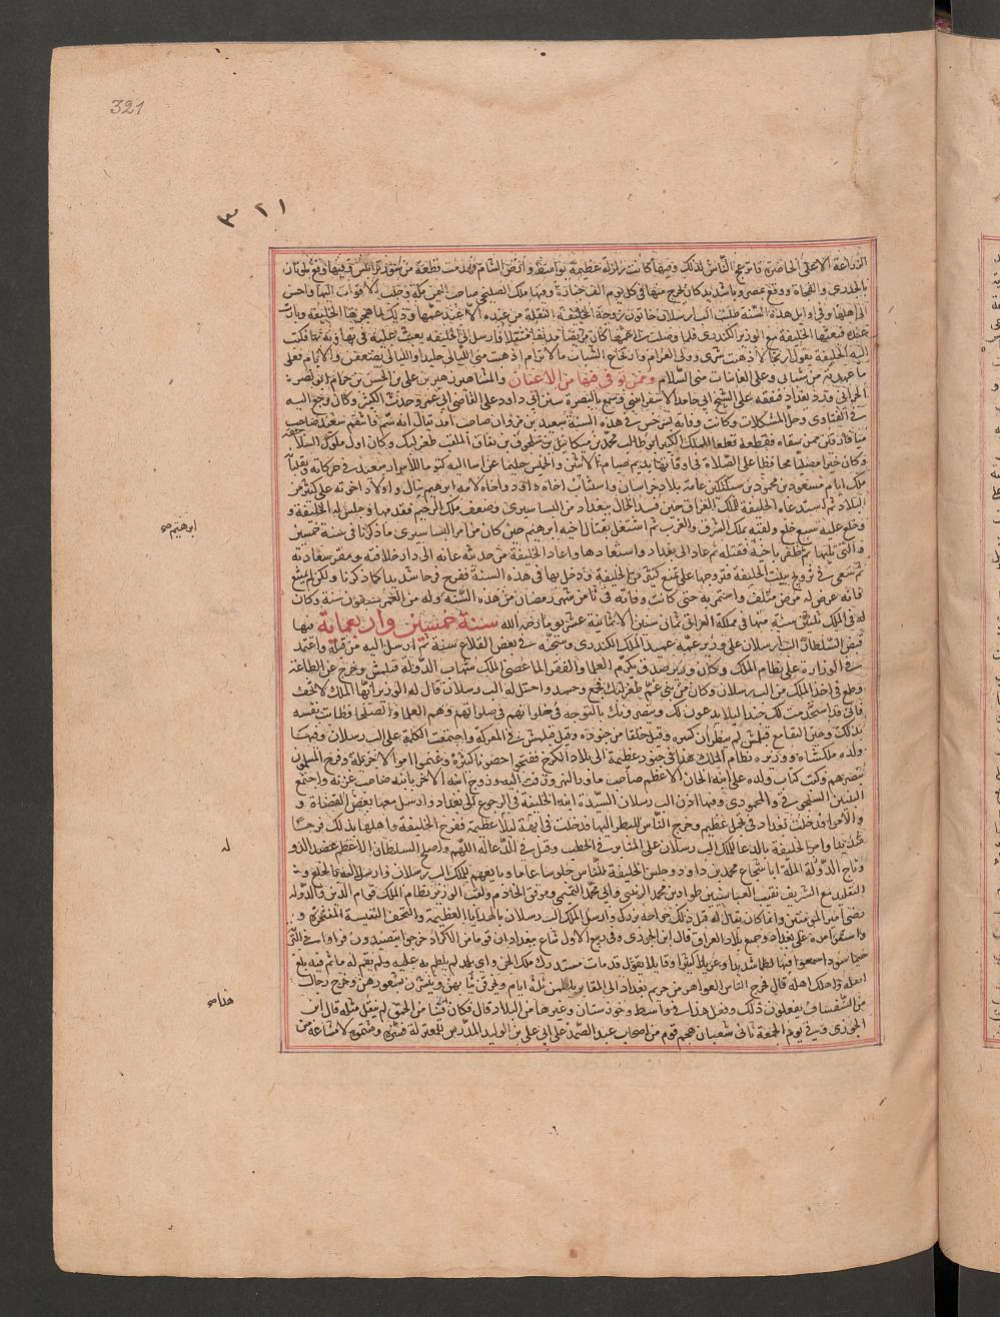 321
٣٢١
الزراعة الا محل الحاضرة فانزعج الناس لذلك وفيها كانت زلزلة عظيمة بواسط وارض الشام فهدمت قطعة من سور طرابلس وفيها وقع موتان
بالجدري والفجأة ووقع بمصر وباء شديد كان يخرج منها في كل يوم الف جنازة وفيها ملك الصليحي صاحب اليمن مكة وجلب الاقوات اليها واحسن
الى اهلها وفي اوايل هذه السنة طلبت الب ارسلان خاتون زوجة الخليفة النقلة من عنده الا عند عمها وذلك لما هجرها الخليفة وبارت
عنده فبعثها الخليفة مع الوزير الكندري فلما وصلت الى عمها كان مريضا
اليه الخليفة يقول
ذهبت شرتي وولى الغرام وارتجاع الشباب ما لا يرام اذهبت مني الليالي جديدا والليالي يضعفن والايام فعلى
ما عهدته من شبابي وعلى الغانيات مني السلام وممن توفي فيها من الاعيان والمشاهير زهير بن علي بن الحسن بن حزام ابو نصر
ورد بغداد فتفقه على الشيخ ابي حامد الاسفراييني وسمع بالبصرة سنن ابي داود على القاضي ابي عمر وحدث بالكثير وكان يرجع اليه
في الفتاوى وحل المشكلات وكانت وفاته بسرخس في هذه السنة سعيد بن مروان صاحب امد يقال انه سم فانتقم سعيد صاحب
ميافارقين ممن سقاه فقطعه قطعا الملك الكبير ابو طالب محمد بن ميكائيل بن سلجوق بن تقاق الملقب طغرلبك وكان اول ملوك السلاجقة
وكان خيرا مصليا محافظا على الصلاة في اوقاتها يديم صيام الاثنين والخميس حليما عمن اسا اليه كتوما للاسرار سعيدا في حركاته
ملك ايام مسعود بن محمود بن سبكتكين عامة بلاد خراسان واستناب اخاه داود واخاه لامه ابراهيم ينال واولاد اخوته على كثير من
البلاد ثم استدعاه الخليفة لملك العراق حين فسد الحال ببغداد من البساسيري وضعف ملك الرحيم فقدمها وجلس له الخليفة و
وخلع عليه سبع خلع ولقبه بملك الشرق والغرب ثم اشتغل بقتال اخيه ابراهيم حين كان من امر البساسيري ما ذكرنا في سنة خمسين
والتي تليها ثم ظفر باخيه فقتله ثم عاد الى بغداد واستعادها واعاد الخليفة من حديثة عانه الى دار خلافته ومقر سعادته
ثم سعى في تزويج ببنت الخليفة فتزوجها على تمنع كثير من الخليفة ودخل بها في هذه السنة ففرح فرحا شديدا كما ذكرنا ولكن لم يتمتع
فانه عرض له مرض متلف واستمر به حتى كانت وفاته في ثامن شهر رمضان من هذه السنة وله من العمر سبعون سنة وكان
له في الملك ثلاثين سنة منها في مملكة العراق ثمان سنين الا ثمانية عشر يوما رحمه الله سنة خمسين واربعمائة فيها
قبض السلطان الب ارسلان على وزير عمه عميد الملك الكندري وسجنه في بعض القلاع سنة ثم ارسل اليه من قتله واعتمد
في الوزارة على نظام الملك وكان وزير صدق يكرم العلما والفقرا لما عصى الملك شهاب الدولة قتلمش وخرج عن الطاعة
وطمع في اخذ الملك من الب ارسلان وكان من بني عم طغرلبك فجمع وحشد واحتفل له الب ارسلان قال له الوزير ايها الملك لا تخف
فاني قد استخدمت لك جندا ليلا يدعون لك وينصرونك بالتوجه في خلواتهم في صلواتهم وهم العلما والصلحا فطابت نفسه
بذلك وحين التقا مع قتلمش لم ينظر ان كسره وقتل خلقا من جنوده وقتل قتلمش في المعركة واجتمعت الكلمة على الب ارسلان وفيها
ولده ملكشاه ووزيره نظام الملك هذا في جنود عظيمة الى بلاد الكرج ففتحوا حصونا كثيرة وغنموا اموالا جزيلة وفرح المسلمون
بنصرهم وكتب كتاب ولده على ابنة الخان الاعظم صاحب ماورالنهر وزفت اليه وزوج ابنه الاخر بابنة صاحب غزنة واجتمع
البيتين السلجوقي والمحمودي وفيها اذن الب ارسلان السيدة ابنة الخليفة في الرجوع الى بغداد وارسل معها بعض القضاة و
والامرا فدخلت بغداد في تجمل عظيم وخرج الناس للنظر اليها فدخلت في ابهة ليلا عظيمة ففرح الخليفة واهلها بذلك فرحا
شديدا وامر الخليفة بالدعا للملك الب ارسلان على المنابر في الخطب وقيل في الدعا له اللهم واصلح السلطان الاعظم عضد الدولة
وتاج الدولة الملة ابا شجاع محمد بن داود وجلس الخليفة للناس جلوسا عاما وبايعهم للملك الب ارسلان وارسل اليه بالخلع
التقليد مع الشريف نقيب العباسيين طراد بن محمد الزينبي وابي محمد التميمي وموفق الخادم ولقب الوزير نظام الملك قوام الدين والدولة
رضي امير المؤمنين وانما كان يقال له قبل ذلك خواجه بزرك وارسل الملك الب ارسلان بالهدايا العظيمة والتحف النفيسة المفتخرة و
واستقر امره على بغداد وجميع بلاد العراق قال ابن الجوزي وفي ربيع الاول شاع ببغداد ان قوما من الاكراد خرجوا يتصيدون فراوا في البرية
خيما سودا سمعوا فيها لطما شديدا وعويلا كثيرا وقايلا يقول قد مات سيدوك ملك الجن واي بلد لم يلطم به عليه ولم يقم له ماتم فيه قلع
اصله واهلك اهله قال فخرج النسا العواهر من حريم بغداد الى المقابر يلطمن ثلاثة ايام ويخرقن ثيابهن وينشرن شعورهن وخرج رجال
من السفساف يفعلون ذلك وفعل هذا في واسط وخوزستان وغيرها من البلاد قال فكان فنا من الحمق لم ينقل مثله قال ابن
الجوزي وفي يوم الجمعة ثاني شعبان هجم قوم من اصحاب عبد الصمد على ابي علي بن الوليد المدرس للمعتزلة فسبوه وشتموه لامتناعه من
ابرهيم صح
له
هذا صح